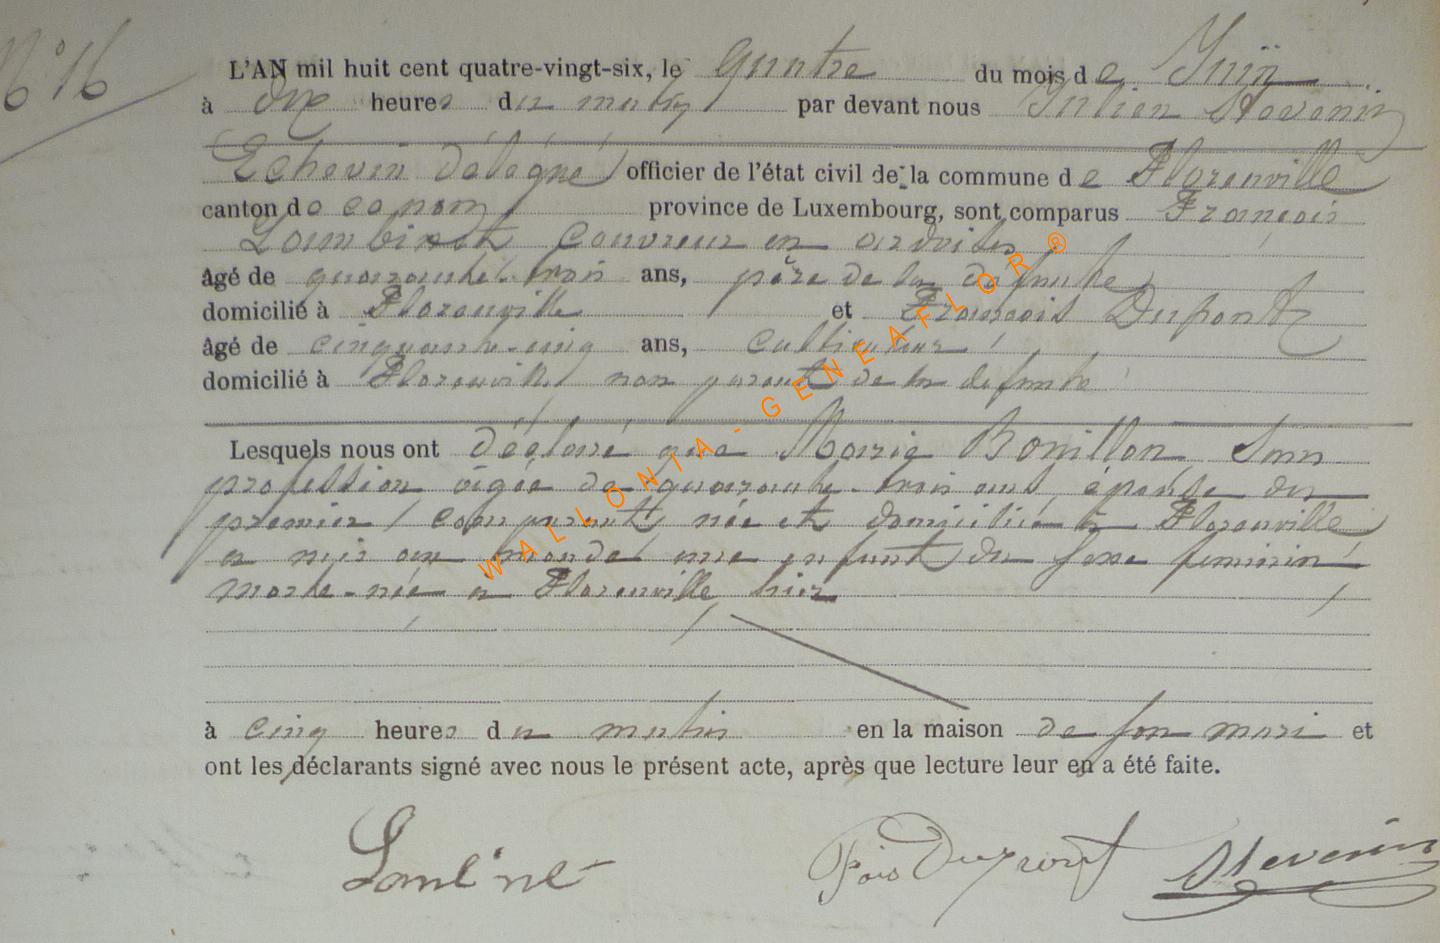 N° 16
L'AN mil huit cent quatre-vingt-six, le quatre du mois de Juin
à dix heures du matin par devant nous Julien Stevenin
Echevin délégué officier de l'état civil de la commune de Florenville
canton de canon province de Luxembourg, sont comparus François
Lambinet couvreur en ardoises
âgé de quarante-trois ans, père de la defunte
domicilié à Florenville et François Dupont
âgé de cinquante-cinq ans, cultivateur
domicilié à Florenville non parent de la defunte
Lesquels nous ont déclaré que Marie Bouillon sans
profession âgée de quarante-trois ans, épouse du
premier comparant, née et domiciliée à Florenville
a mis au monde une enfant du sexe feminin
morte-née à Florenville hier
à cinq heures du matin en la maison de son mari et
ont les déclarants signé avec nous le présent acte, après que lecture leur en a été faite.
Fois Dupont Stevenin
WALLONIA - GENEAFLOR ®